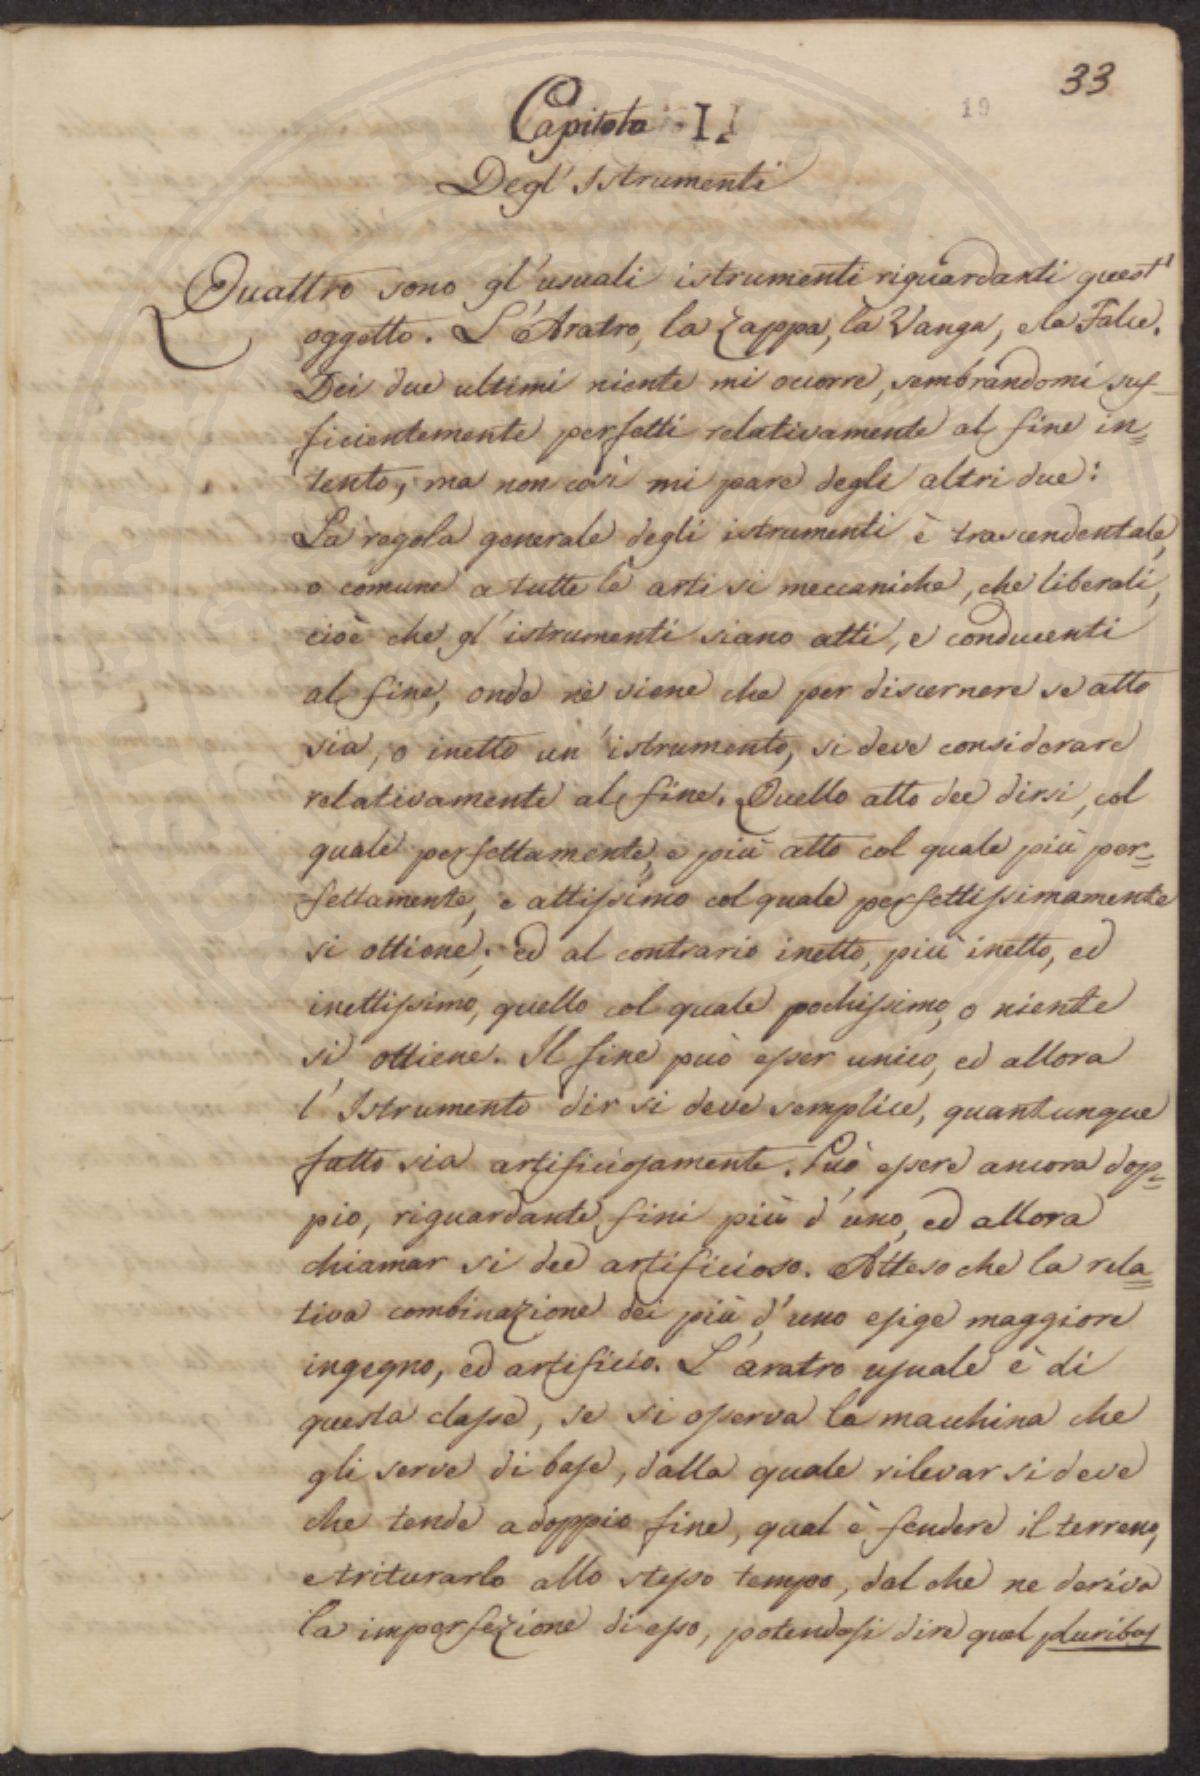 33
19
Capitolo II
Degl' Istrumenti
Quattro sono gl' usuali istrumenti riguardanti quest'
oggetto. L'Aratro, la Zappa, la Vanga, e la Falce.
Dei due ultimi niente mi ocorre, sembrandomi suf-
ficientemente perfetti relativamente al fine in=
tento, ma non così mi pare degli altri due:
La regola generale degli istrumenti è trascendentale,
o comune a tutte le arti si meccaniche, che liberali,
cioè che gl' istrumenti siano atti, e conducenti
al fine, onde ne viene che per discernere se atto
sia, o inetto un' istrumento, si deve considerare
relativamente al fine. Quello atto dee dirsi, col
quale perfettamente, e più atto col quale più per=
fettamente, e attissimo col quale perfettissimamente
si ottiene; ed al contrario inetto, più inetto, ed
inettissimo, quello col quale pochissimo, o niente
si ottiene. Il fine può esser unico, ed allora
l' Istrumento dir si deve semplice, quantunque
fatto sia artificiosamente. Può essere ancora dop=
pio, riguardante fini più d'uno, ed allora
chiamar si dee artificioso. Atteso che la rela=
tiva combinazione dei più d'uno esige maggiore
ingegno, ed artificio. L'aratro usuale è di
questa classe, se si osserva la macchina che
gli serve di base, dalla quale rilevar si deve
che tende a doppio fine, qual è fendere il terreno,
e triturarlo allo stesso tempo, dal che ne deriva
la imperfezione di esso, potendosi dire quel pluribus